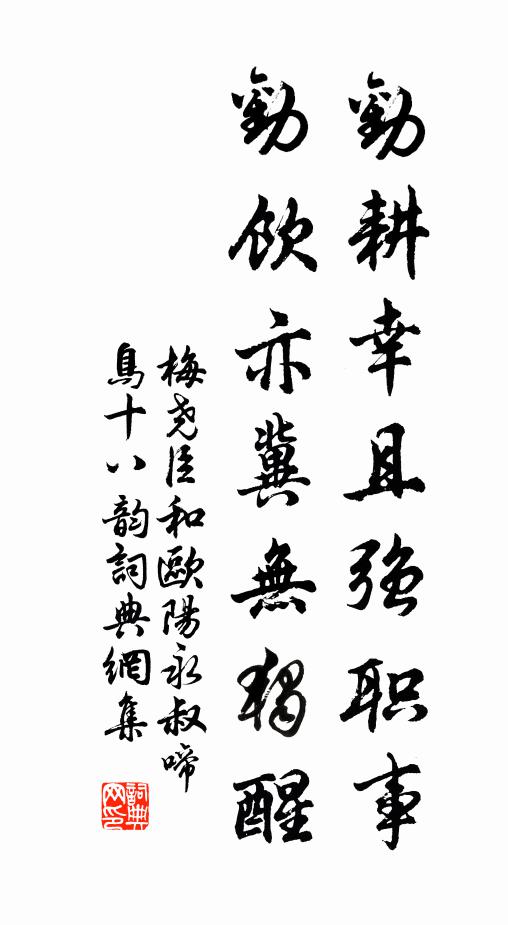 勸耕幸且強职事
勸飲亦冀無獨醒
梅尧臣和歐陽永叔啼
鳥十八韵詞典網集
詞典
网印